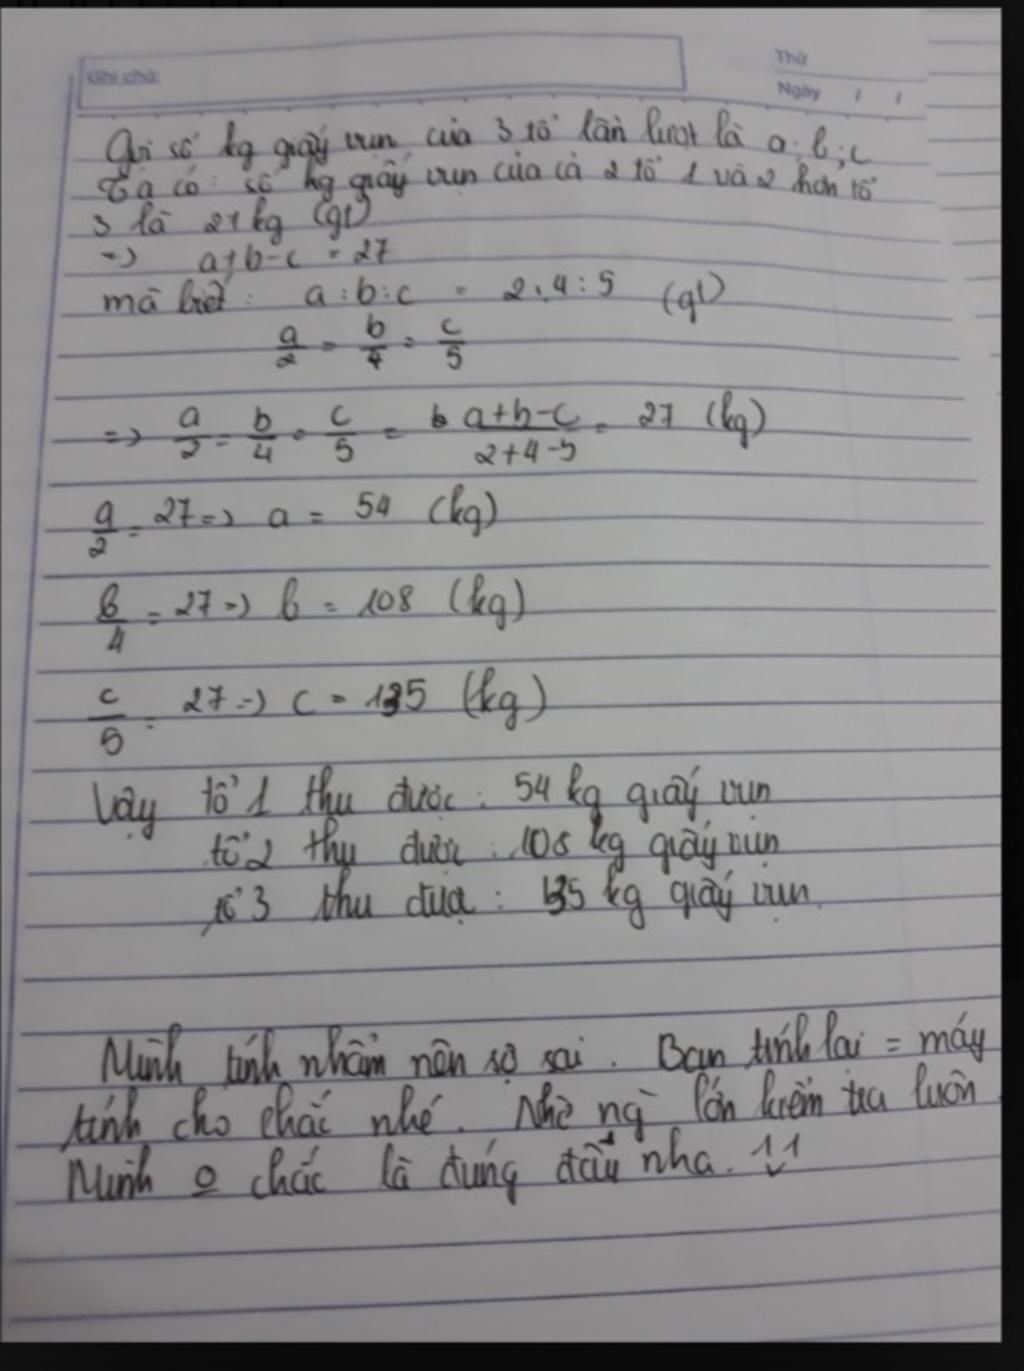 Ghi chú:
Thứ
Ngày / /
Gọi số kg giấy vụn của 3 tổ lần lượt là a; b; c
Ta có: số kg giấy vụn của cả 2 tổ 1 và 2 hơn tổ
3 là 27 kg (gt)
=> a+b-c = 27
mà biết: a:b:c = 2:4:5 (gt)
a/2 = b/4 = c/5
=> a/2 = b/4 = c/5 = a+b-c/2+4-5 = 27 (kg)
a/2 = 27 => a = 54 (kg)
b/4 = 27 => b = 108 (kg)
c/5 = 27 => c = 135 (kg)
Vậy tổ 1 thu được: 54 kg giấy vụn
tổ 2 thu được: 108 kg giấy vụn
tổ 3 thu đưa: 135 kg giấy vụn.
Mình tính nhẩm nên sợ sai. Bạn tính lại = máy
tính cho chắc nhé. Nhờ ng lớn kiểm tra luôn
Mình o chắc là đúng đâu nha.